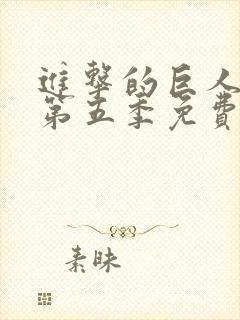 進擊的巨人
第五季免費
素昧